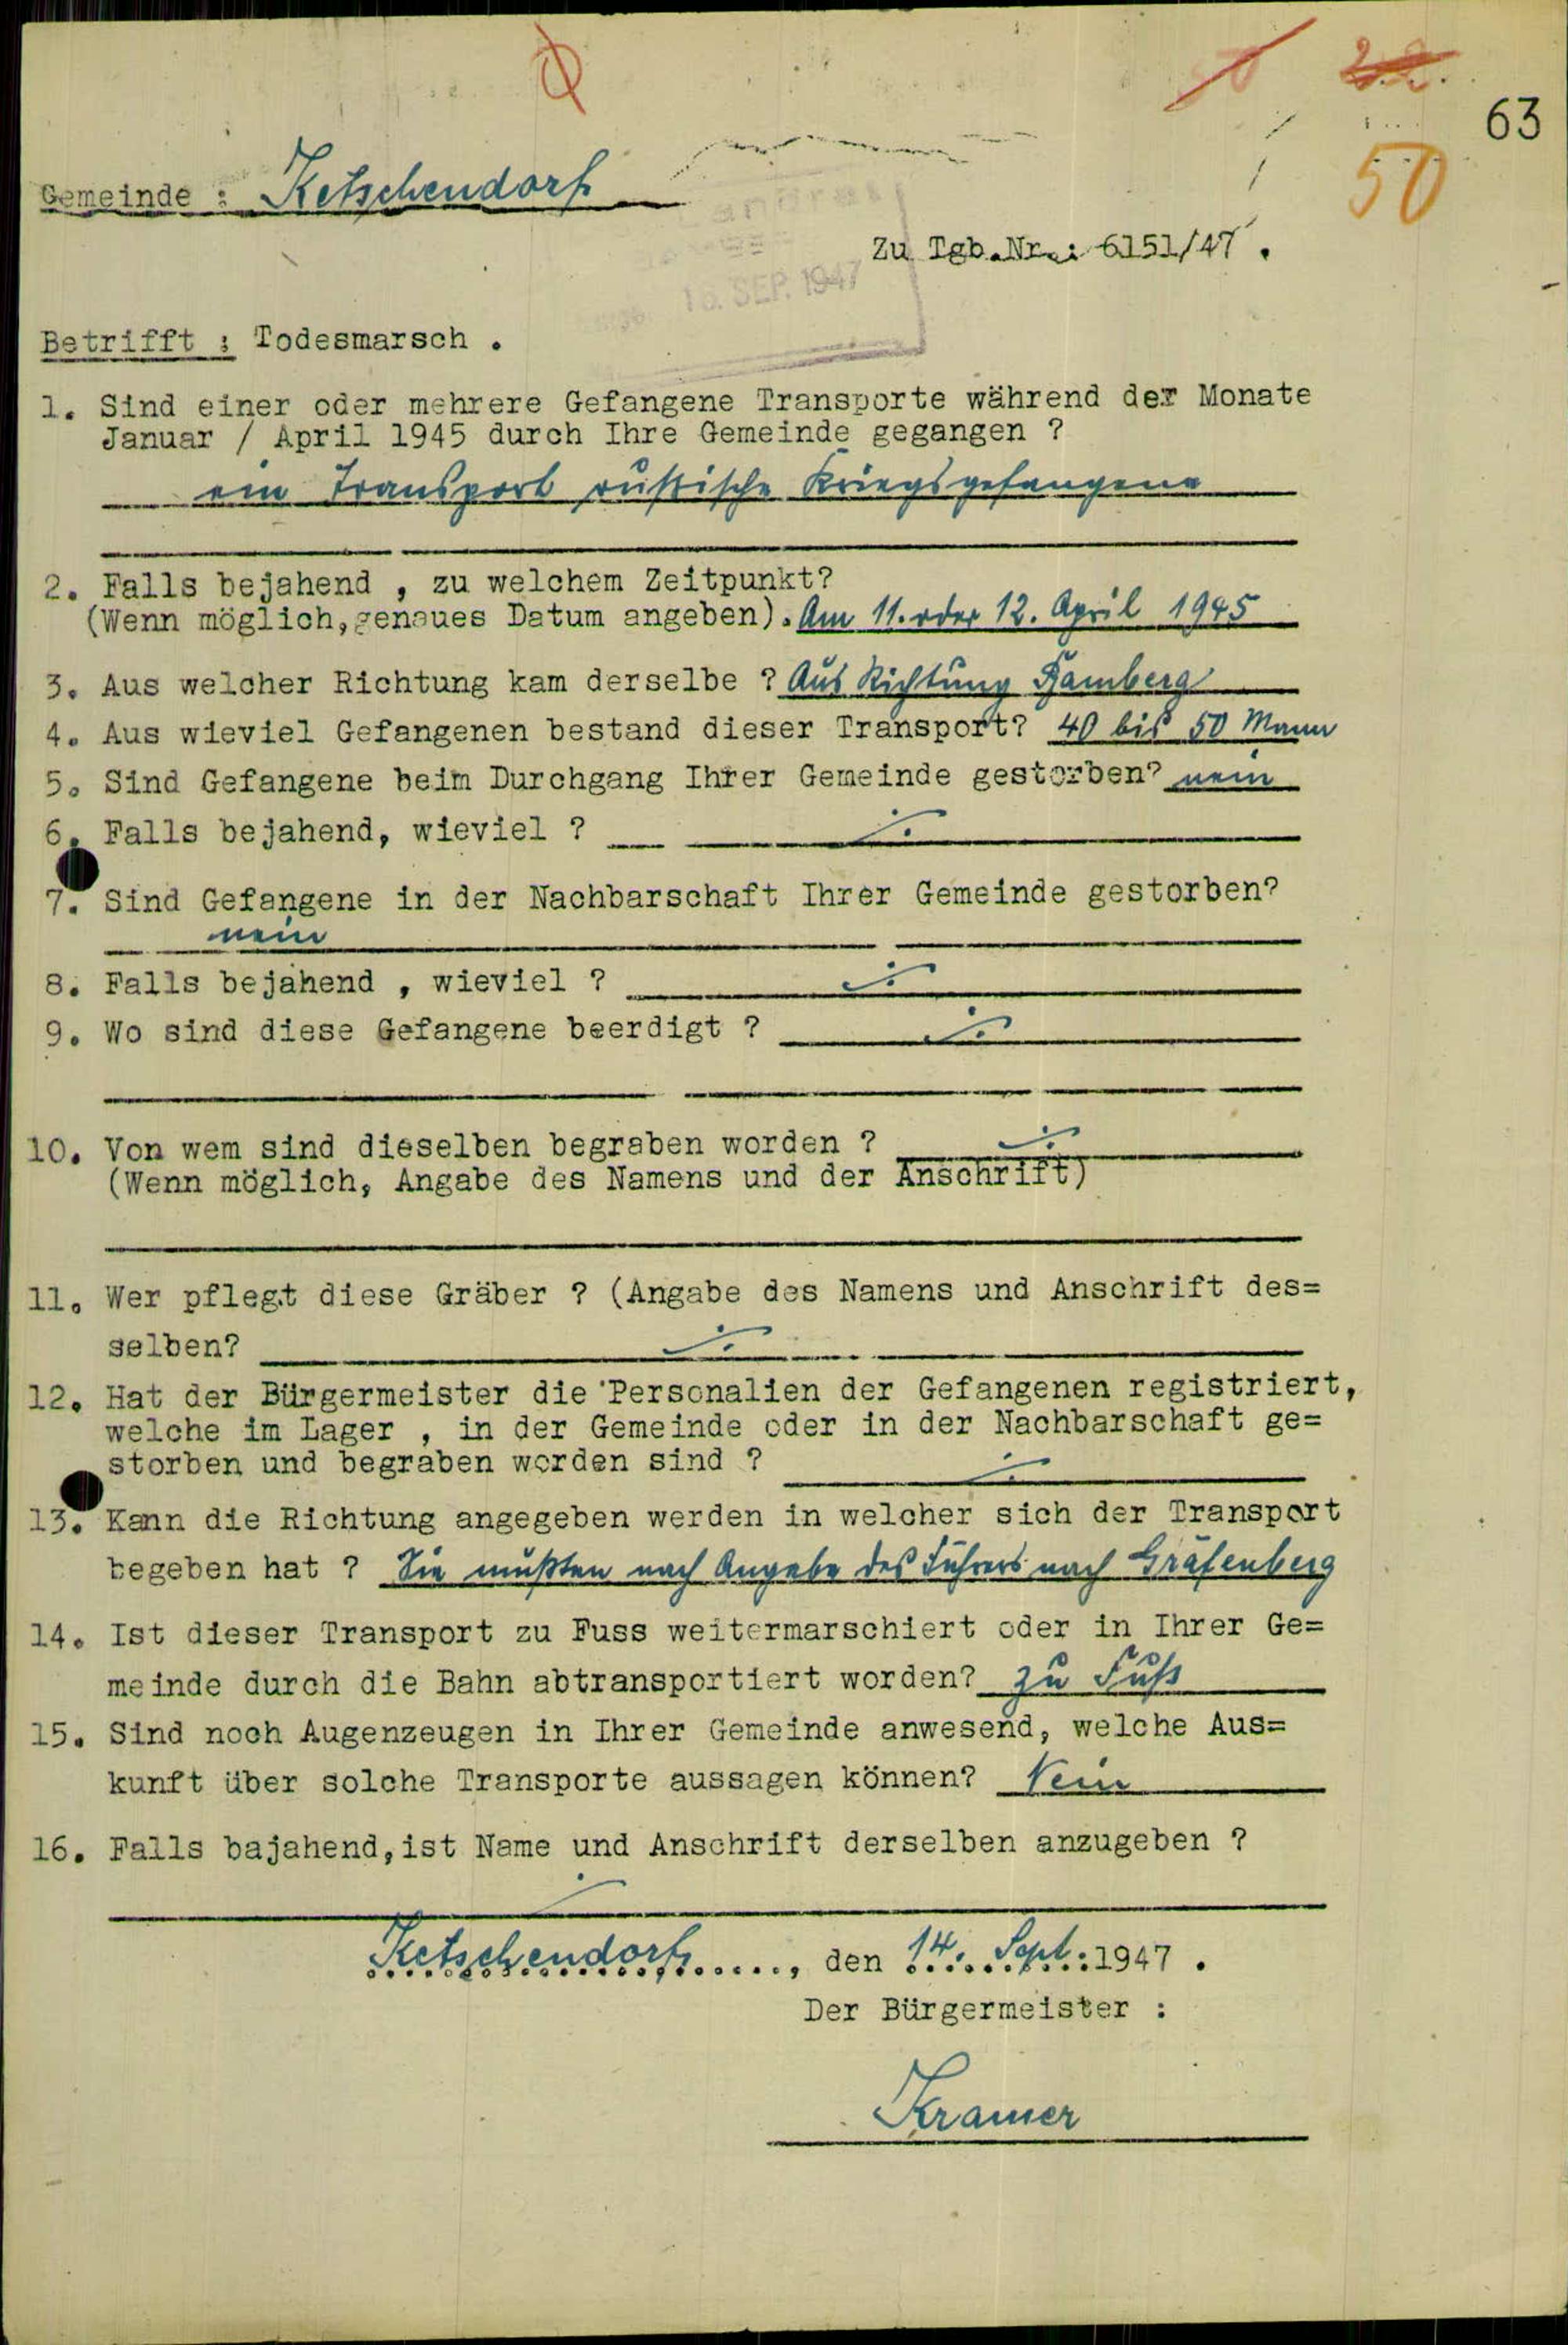 63
50
Gemeinde : Ketschendorf
Zu Tgb.Nr.: 6151/47 .
16. SEP. 1947
Betrifft : Todesmarsch .
1. Sind einer oder mehrere Gefangene Transporte während der Monate
Januar / April 1945 durch Ihre Gemeinde gegangen ?
ein Transport russische Kriegsgefangene
2. Falls bejahend , zu welchem Zeitpunkt?
(Wenn möglich,genaues Datum angeben). Am 11. oder 12. April 1945
3. Aus welcher Richtung kam derselbe ? Aus Richtung Bamberg
4. Aus wieviel Gefangenen bestand dieser Transport? 40 bis 50 Mann
5. Sind Gefangene beim Durchgang Ihrer Gemeinde gestorben? nein
6. Falls bejahend, wieviel ? ./.
7. Sind Gefangene in der Nachbarschaft Ihrer Gemeinde gestorben?
nein
8. Falls bejahend , wieviel ? ./.
9. Wo sind diese Gefangene beerdigt ? ./.
10. Von wem sind dieselben begraben worden ? ./.
(Wenn möglich, Angabe des Namens und der Anschrift)
11. Wer pflegt diese Gräber ? (Angabe des Namens und Anschrift des=
selben? ./.
12. Hat der Bürgermeister die Personalien der Gefangenen registriert,
welche im Lager , in der Gemeinde oder in der Nachbarschaft ge=
storben und begraben worden sind ? ./.
13. Kann die Richtung angegeben werden in welcher sich der Transport
begeben hat ? Sie mußten nach Angabe des Führers nach Gräfenberg
14. Ist dieser Transport zu Fuss weitermarschiert oder in Ihrer Ge=
meinde durch die Bahn abtransportiert worden? zu Fuß
15. Sind noch Augenzeugen in Ihrer Gemeinde anwesend, welche Aus=
kunft über solche Transporte aussagen können? Nein
16. Falls bajahend,ist Name und Anschrift derselben anzugeben ?
./.
Ketschendorf......, den 14. Sept. 1947 .
Der Bürgermeister :
Kramer